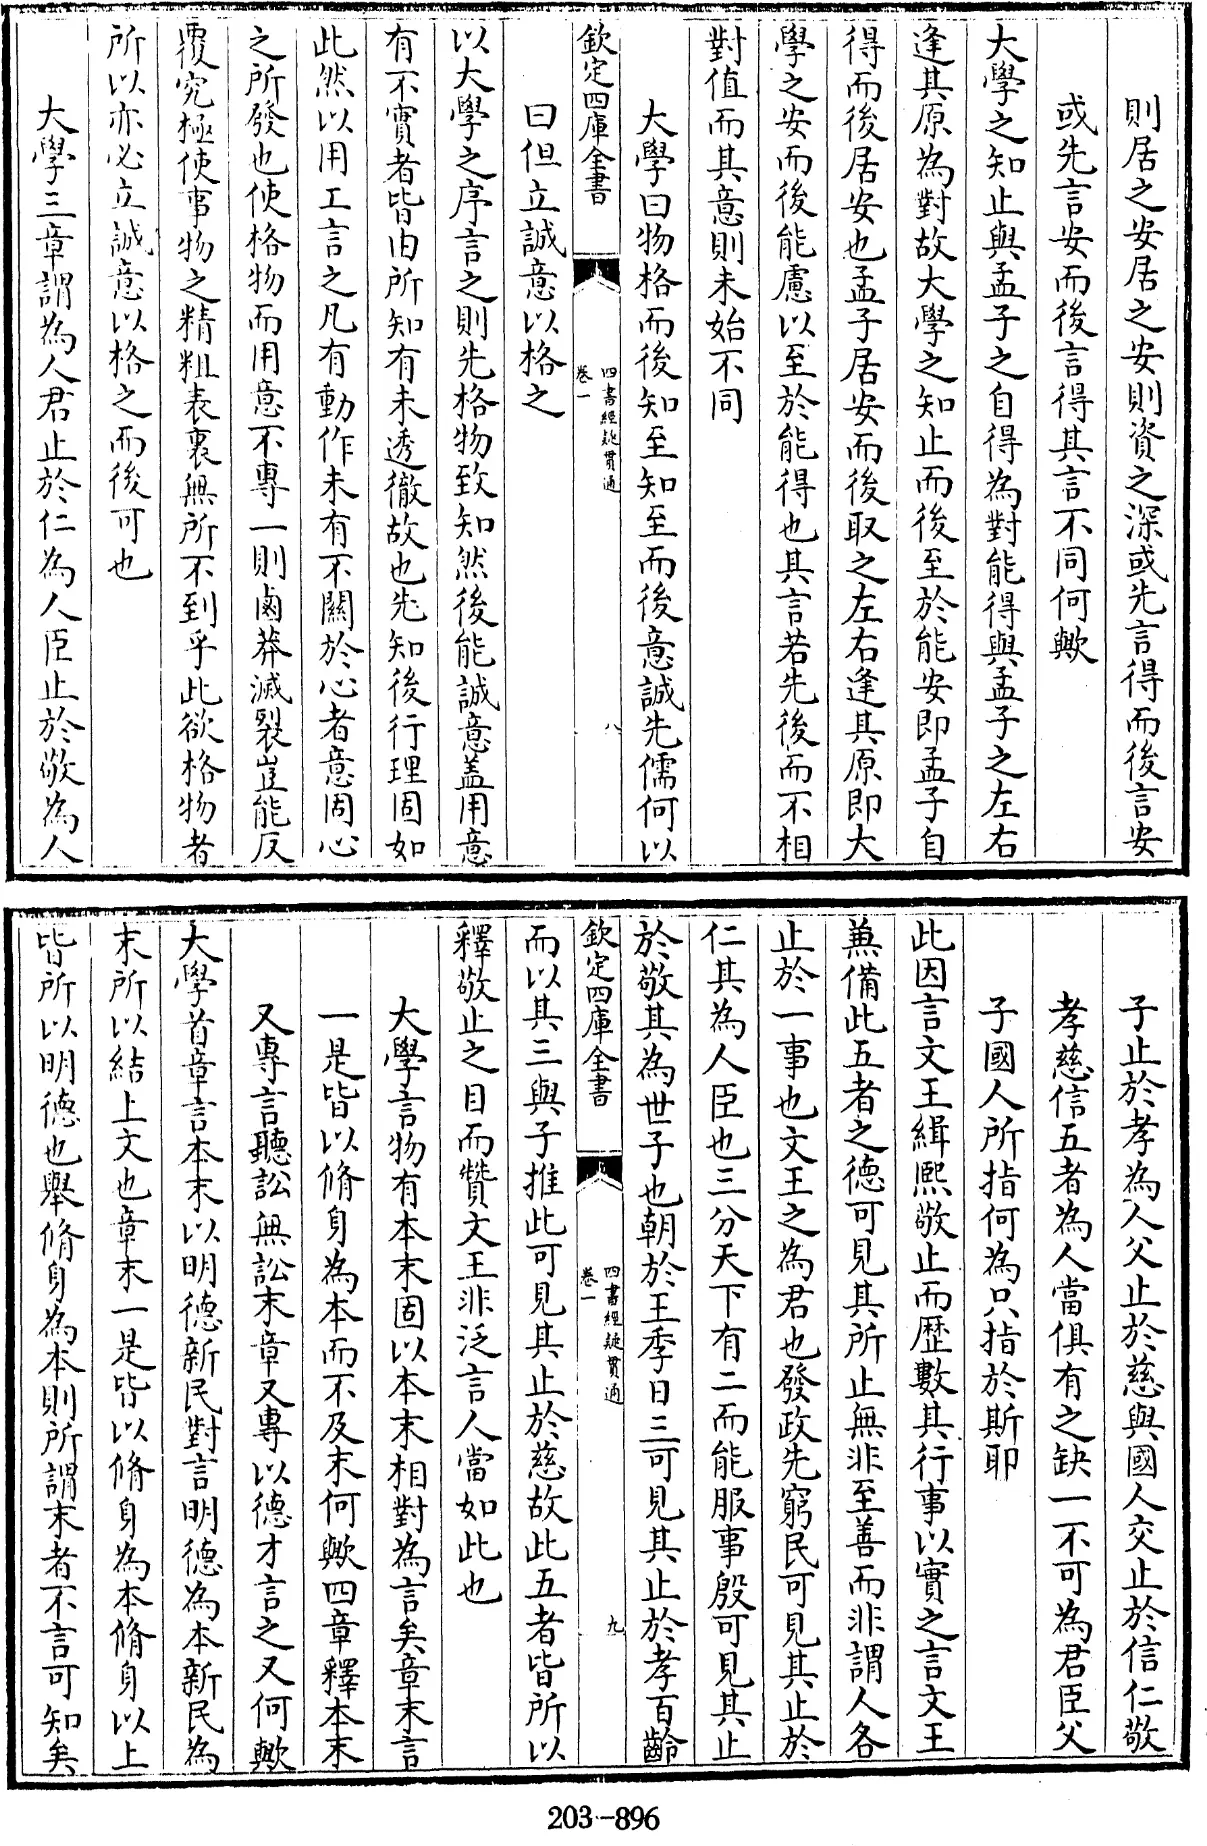 則居之安居之安則資之深或先言得而後言安
或先言安而後言得其言不同何歟
大學之知止與孟子之自得為對能得與孟子之左右
逢其原為對故大學之知止而後至於能安即孟子自
得而後居安也孟子居安而後取之左右逢其原即大
學之安而後能慮以至於能得也其言若先後而不相
對值而其意則未始不同
大學曰物格而後知至知至而後意誠先儒何以
欽定四庫全書
四書經疑貫通
卷一
八
曰但立誠意以格之
以大學之序言之則先格物致知然後能誠意盖用意
有不實者皆由所知有未透徹故也先知後行理固如
此然以用工言之凡有動作未有不關於心者意固心
之所發也使格物而用意不專一則鹵莽滅裂豈能反
覆究極使事物之精粗表裏無所不到乎此欲格物者
所以亦必立誠意以格之而後可也
大學三章謂為人君止於仁為人臣止於敬為人
子止於孝為人父止於慈與國人交止於信仁敬
孝慈信五者為人當俱有之缺一不可為君臣父
子國人所指何為只指於斯耶
此因言文王緝熙敬止而歴數其行事以實之言文王
兼備此五者之德可見其所止無非至善而非謂人各
止於一事也文王之為君也發政先窮民可見其止於
仁其為人臣也三分天下有二而能服事殷可見其止
於敬其為世子也朝於王季日三可見其止於孝百齡
欽定四庫全書
四書經疑貫通
卷一
九
而以其三與子推此可見其止於慈故此五者皆所以
釋敬止之目而贊文王非泛言人當如此也
大學言物有本末固以本末相對為言矣章末言
一是皆以脩身為本而不及末何歟四章釋本末
又專言聽訟無訟末章又專以德才言之又何歟
大學首章言本末以明德新民對言明德為本新民為
末所以結上文也章末一是皆以脩身為本脩身以上
皆所以明德也舉脩身為本則所謂末者不言可知矣
203-896